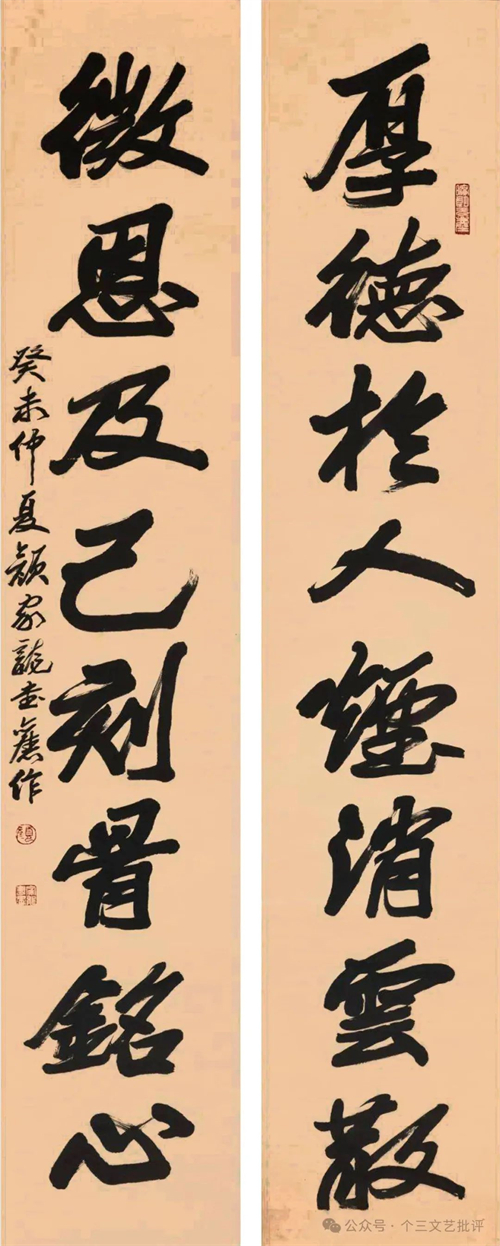 厚德於人煙消雲散
微恩及己刻骨銘心
癸未仲夏顏家龍書舊作
公众号·个三文艺批评